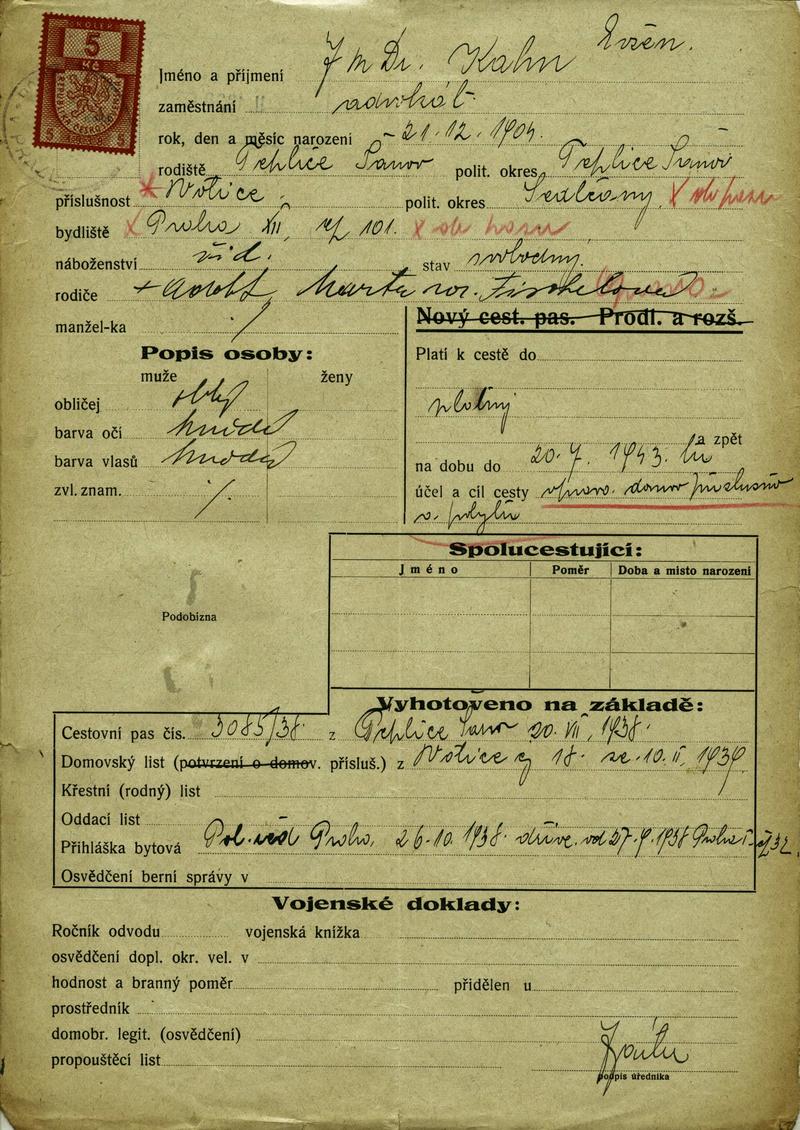 KOLEK
5
Kč
REPUBLIKA ČESKOSLOVENSKÁ
5 5
Jméno a příjmení JUDr. Kahn Evžen.
zaměstnání advokát
rok, den a měsíc narození 21.12.1904.
rodiště Teplice Šanov polit. okres Teplice Šanov
příslušnost Votice polit. okres Sedlčany. x do pasu
bydliště x Praha XII, čp 101. x do pasu
náboženství stav svobodný.
rodiče + Adolf, Marta roz. Fischelová
manžel-ka /
Nový cest. pas. Prodl. a rozš.
Popis osoby:
muže ženy
obličej oblý
barva očí hnědé
barva vlasů hnědé
zvl. znam. /.
Platí k cestě do
platný
a zpět
na dobu do 20.7.1943.
účel a cíl cesty domov. příslušn.
a pobytu
Spolucestující:
Jméno Poměr Doba a místo narození
Podobizna
Vyhotoveno na základě:
Cestovní pas čís. 3085/38. z Teplice Šanov 20.VII.1938.
Domovský list (potvrzení o domov. přísluš.) z Votice čj 18. ze 10.II.1939
Křestní (rodný) list
Oddací list
Přihláška bytová Pol. řed Praha, 26.10.1938. dříve. od 27.9.1938 Praha I. čp 32.
Osvědčení berní správy v
Vojenské doklady:
Ročník odvodu vojenská knížka
osvědčení dopl. okr. vel. v
hodnost a branný poměr přidělen u
prostředník
domobr. legit. (osvědčení)
propouštěcí list
podpis úředníka